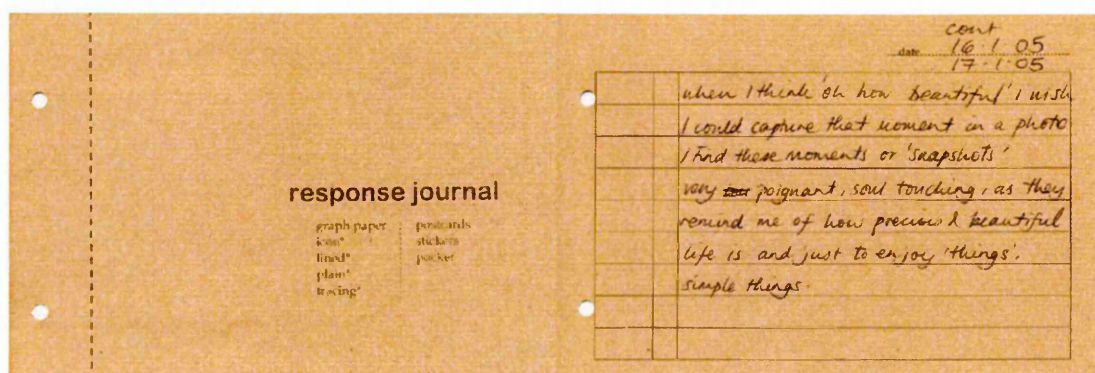 response journal
graph paper
icon*
lined*
plain*
tracing*
postcards
stickers
pocket
cont
date 16.1.05
17.1.05
when I think 'oh how beautiful' I wish
I could capture that moment in a photo
I find these moments or 'snapshots'
very poignant, soul touching, as they
remind me of how precious & beautiful
life is and just to enjoy 'things',
simple things.